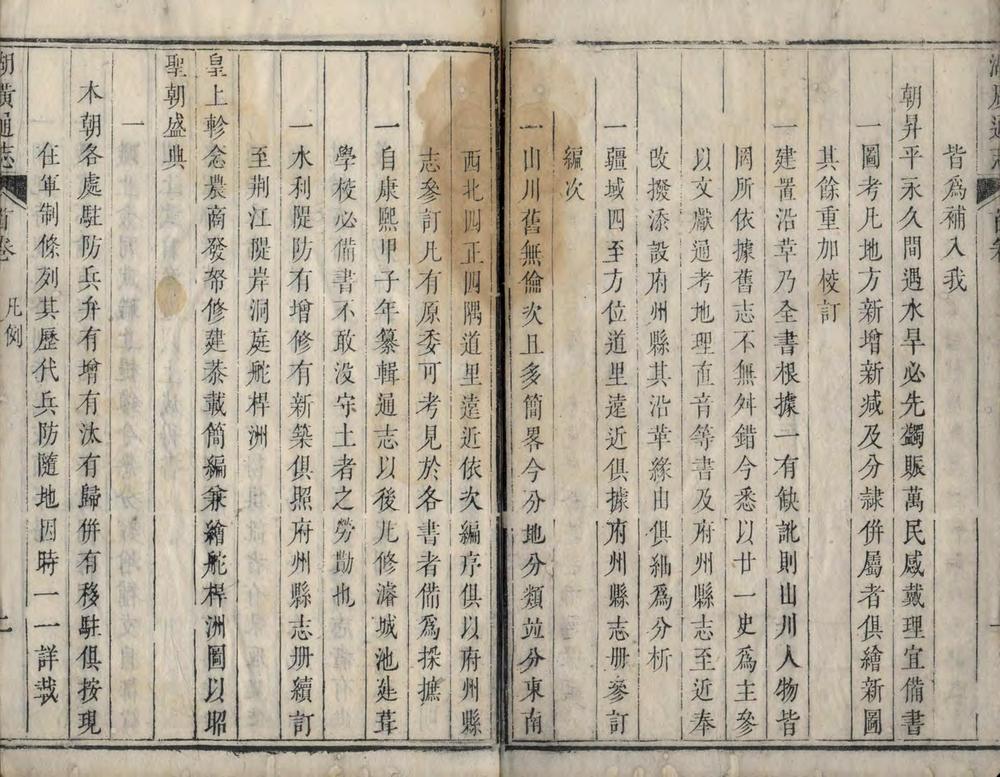 皆爲補入我
朝昇平永久間遇水旱必先蠲賑萬民感戴理宜備書
一圖考凡地方新增新减及分隷併屬者俱繪新圖
其餘重加校訂
一建置沿革乃全書根據一有缺訛則山川人物皆
罔所依據舊志不無舛錯今悉以廿一史爲主參
以文獻通考地理直音等書及府州縣志至近奉
改撥添設府州縣其沿革緣由俱細爲分析
一疆域四至方位道里遠近俱據府州縣志册參訂
編次
一山川舊無倫次且多簡畧今分地分類竝分東南
西北四正四隅道里遠近依次編序俱以府州縣
志參訂凡有原委可考見於各書者備爲採摭
一自康熙甲子年纂輯通志以後凡修濬城池建葺
學校必備書不敢没守土者之勞勩也
一水利隄防有增修有新築俱照府州縣志册續訂
至荆江隄岸洞庭舵桿洲
皇上軫念農商發帑修建恭載簡編兼繪舵桿洲圖以昭
聖朝盛典
一
本朝各處駐防兵弁有增有汰有歸併有移駐俱按現
在軍制條列其歷代兵防隨地因時一一詳載
湖廣通志
首卷
凡例
二